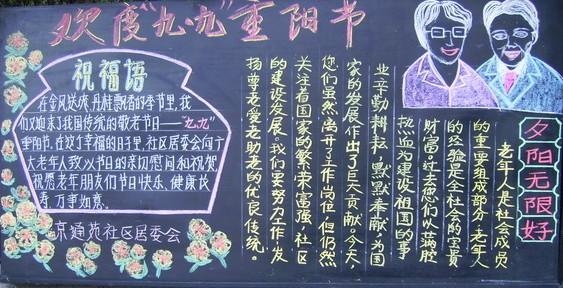 欢度"九·九"重阳节
祝福语
在金风送爽,丹桂飘香的季节里,我
们又迎来了我国传统的敬老节日——"九九"
重阳节.在这个幸福的日子里,社区居委会向广
大老年人致以节日的亲切慰问和祝贺
祝愿老年朋友们节日快乐、健康长
寿、万事如意.
京通苑社区居委会
夕阳无限好
老年人是社会成员
的重要组成部分,老年人
的经验是全社会的宝贵
财富。过去他们以满腔
热血为建设祖国的事
业辛勤耕耘,默默奉献,为国
家的发展作出了巨大贡献。今天,
您们虽然离开了工作岗位,但仍然
关注着国家的繁荣富强,社区
的建设发展,我们要努力工作,发
扬尊老爱老助老的优良传统。